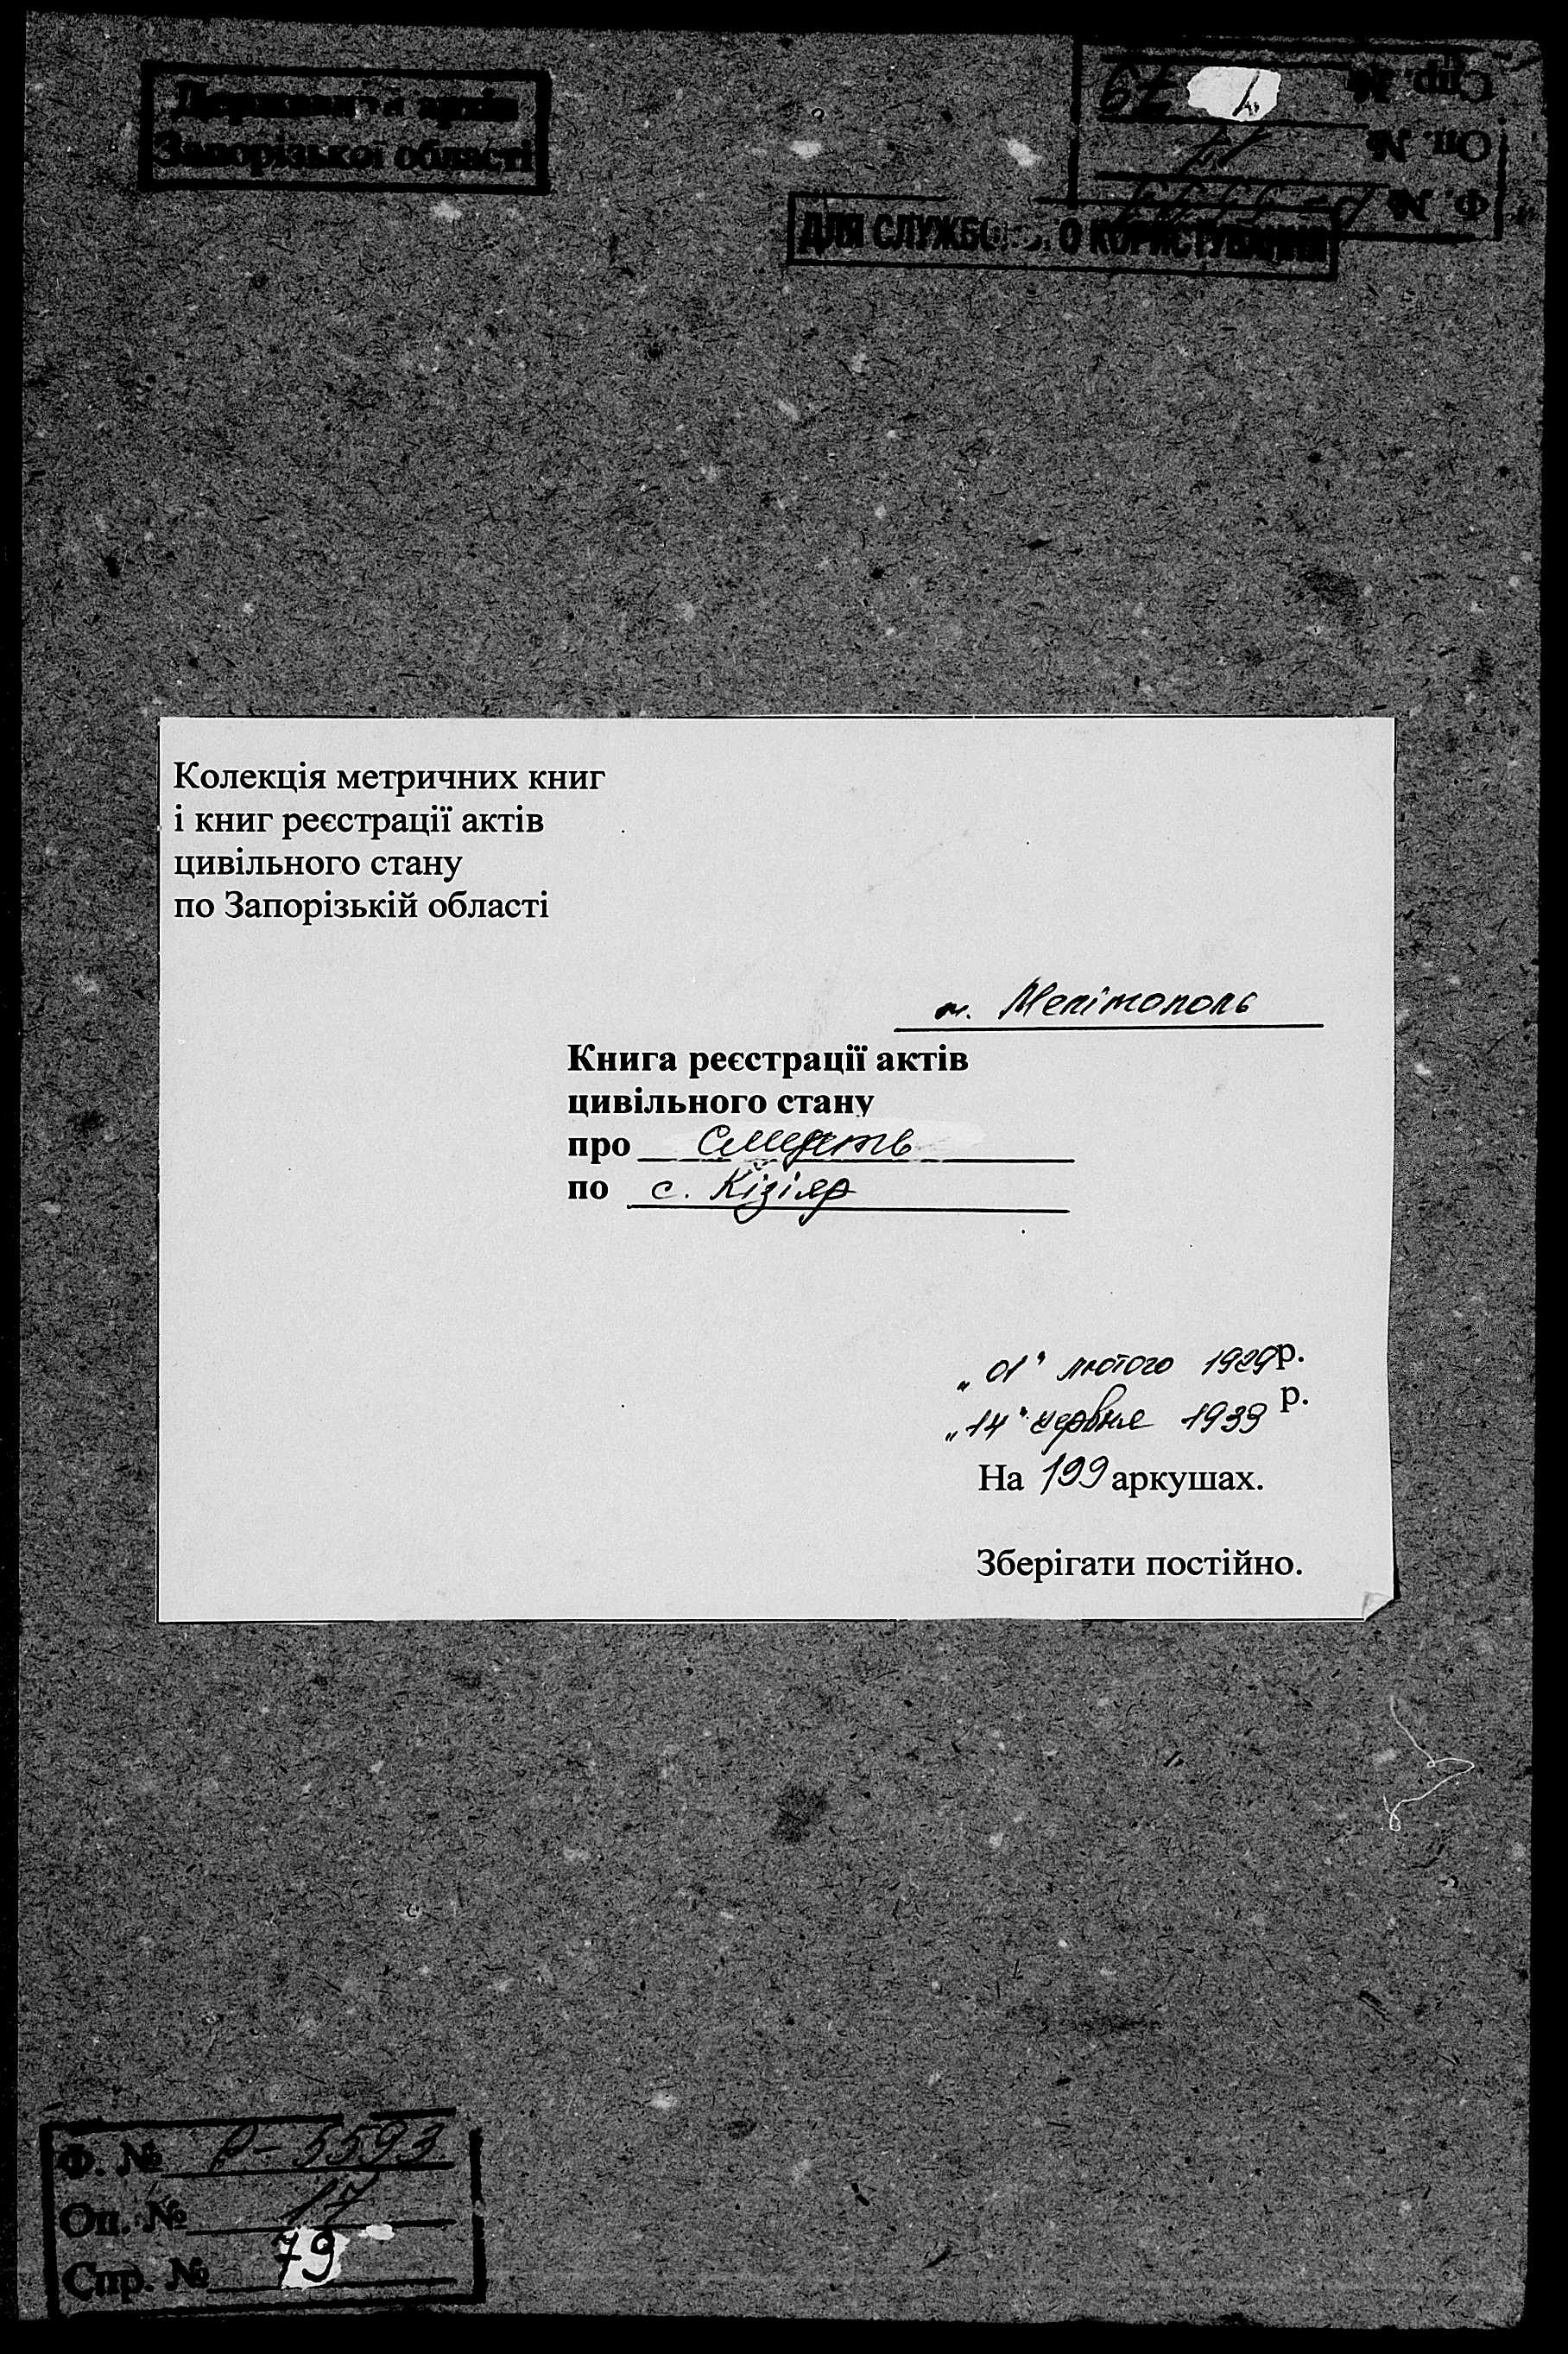 Державний архів
Запорізької області
Спр. № 79
Оп. №
Ф. №
ДЛЯ СЛУЖБОВОГО КОРИСТУВАННЯ
Колекція метричних книг
і книг реєстрації актів
цивільного стану
по Запорізькій області
м. Мелітополь
Книга реєстрації актів
цивільного стану
про смерть
по с. Кізіяр
„01" лютого 1929 р.
„14" червня 1939 р.
На 199 аркушах.
Зберігати постійно.
Ф. № Р-5593
Оп. № 17
Спр. № 79